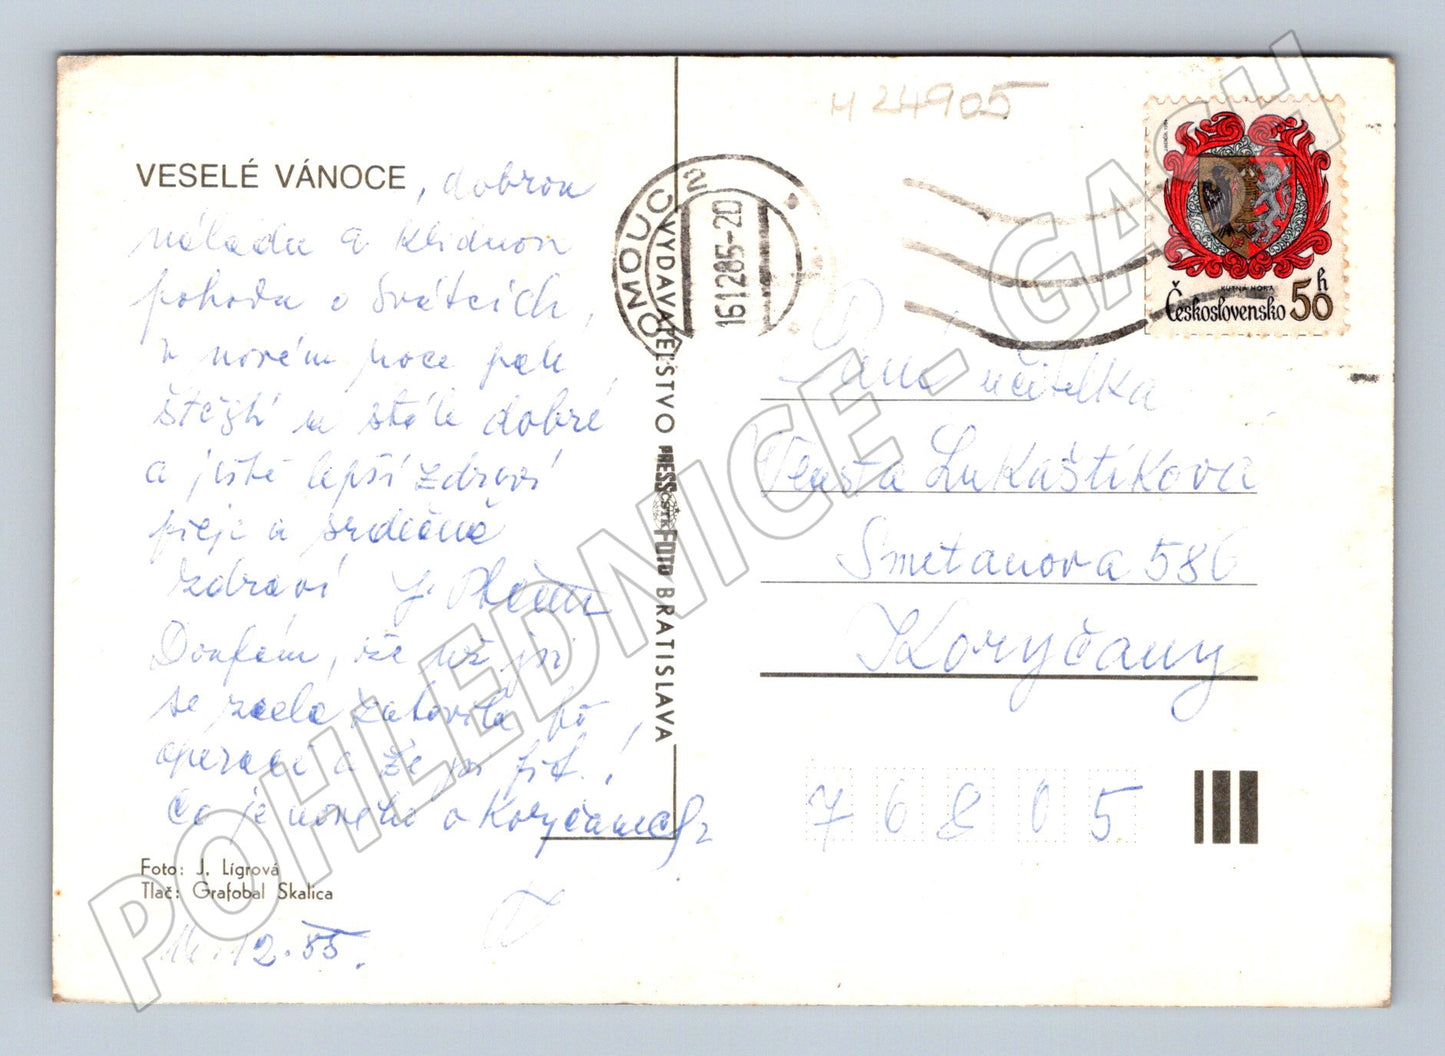 VESELÉ VÁNOCE, dobrou
náladu a klidnou
pohodu o Svátcích,
v novém roce pak
štěstí a stále dobré
a ještě lepší zdraví
přeje a srdečně
zdraví J.
Doufám, že už jsi
se zcela zotavila po
operaci a že jsi fit!
Co je nového v Koryčanech?
Foto: J. Lígrová
Tlač: Grafobal Skalica
12.85.
VYDAVATEĽSTVO PRESSFOTO BRATISLAVA
ČSTK
H 24905
OLOMOUC 2
16.12.85-20
KUTNÁ HORA
Československo 50 h
Paní učitelka
Vlasta Lukaštíková
Smetanova 586
Koryčany
76805
POHLEDNICE - GASH